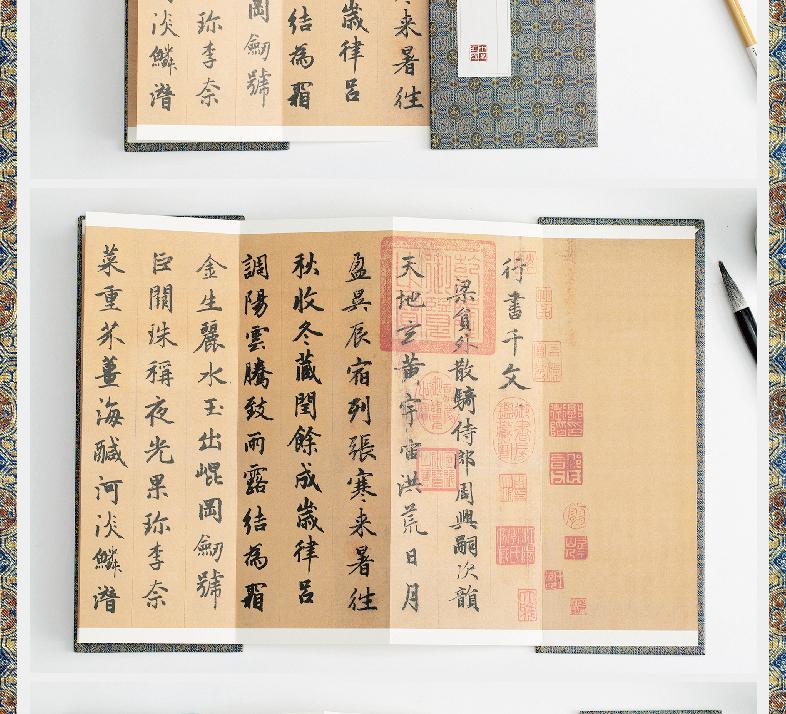 来暑往
歲律呂
結為霜
岡劒號
珍李奈
淡鱗潛
行書千文
梁員外散騎侍郎周興嗣次韻
天地玄黄宇宙洪荒日月
盈昃辰宿列張寒来暑往
秋收冬藏閏餘成歲律呂
調陽雲騰致雨露結為霜
金生麗水玉出崐岡劒號
巨闕珠稱夜光果珍李奈
菜重芥薑海鹹河淡鱗潛